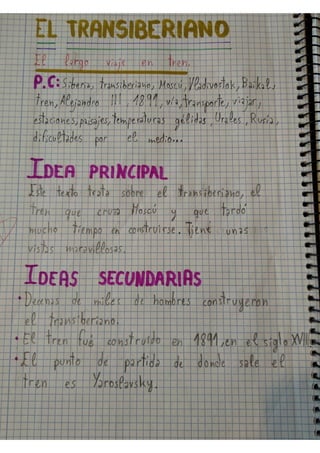 EL TRANSIBERIANO
El largo viaje en tren.
P.C: Siberia, transiberiano, Moscú, Vladivostok, Baikal,
tren, Alejandro III, 1891, vía, transporte, viajar,
estaciones, paisajes, temperaturas gélidas, Urales, Rusia,
dificultades por el medio...
IDEA PRINCIPAL
Este texto trata sobre el transiberiano, el
tren que cruza Moscú y que tardó
mucho tiempo en construirse. Tiene unas
vistas maravillosas.
IDEAS SECUNDARIAS
• Decenas de miles de hombres construyeron
el transiberiano.
• El tren fué construido en 1891, en el siglo XVIII
• El punto de partida de donde sale el
tren es Yaroslavsky.